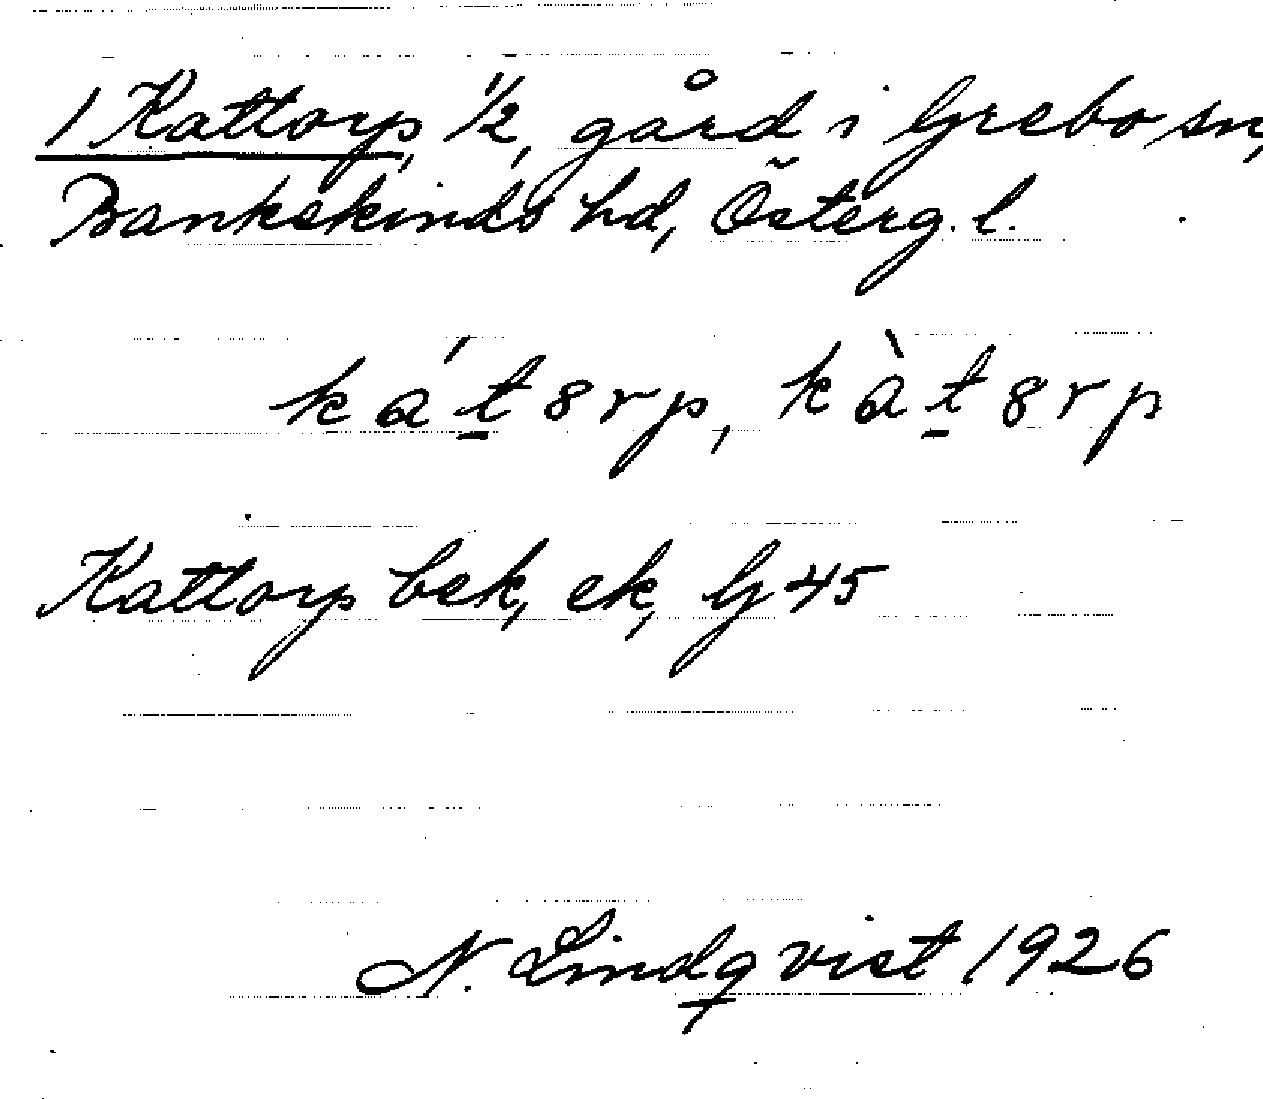 1 Kattorp, 1/2, gård i Grebo sn,
Bankekinds hd, Österg. l.
ká t̲ 8 r p, kà t̲ 8 r p
Kattorp bek, ek, G 45
N. Lindqvist 1926